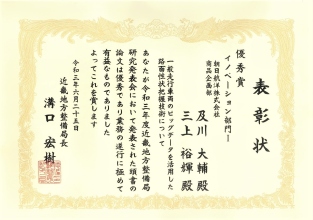 表彰状
優秀賞
イノベーション部門Ⅰ
朝日航洋株式会社
商品企画部
及川 大輔 殿
三上 裕輝 殿
一般走行車両のビッグデータを活用した
路面性状把握技術について
あなたが令和三年度近畿地方整備局
研究発表会において発表された頭書の
論文は優秀であり業務の遂行に極めて
有益なものでありました
よってこれを賞します
令和三年六月二十五日
近畿地方整備局長
溝口 宏樹